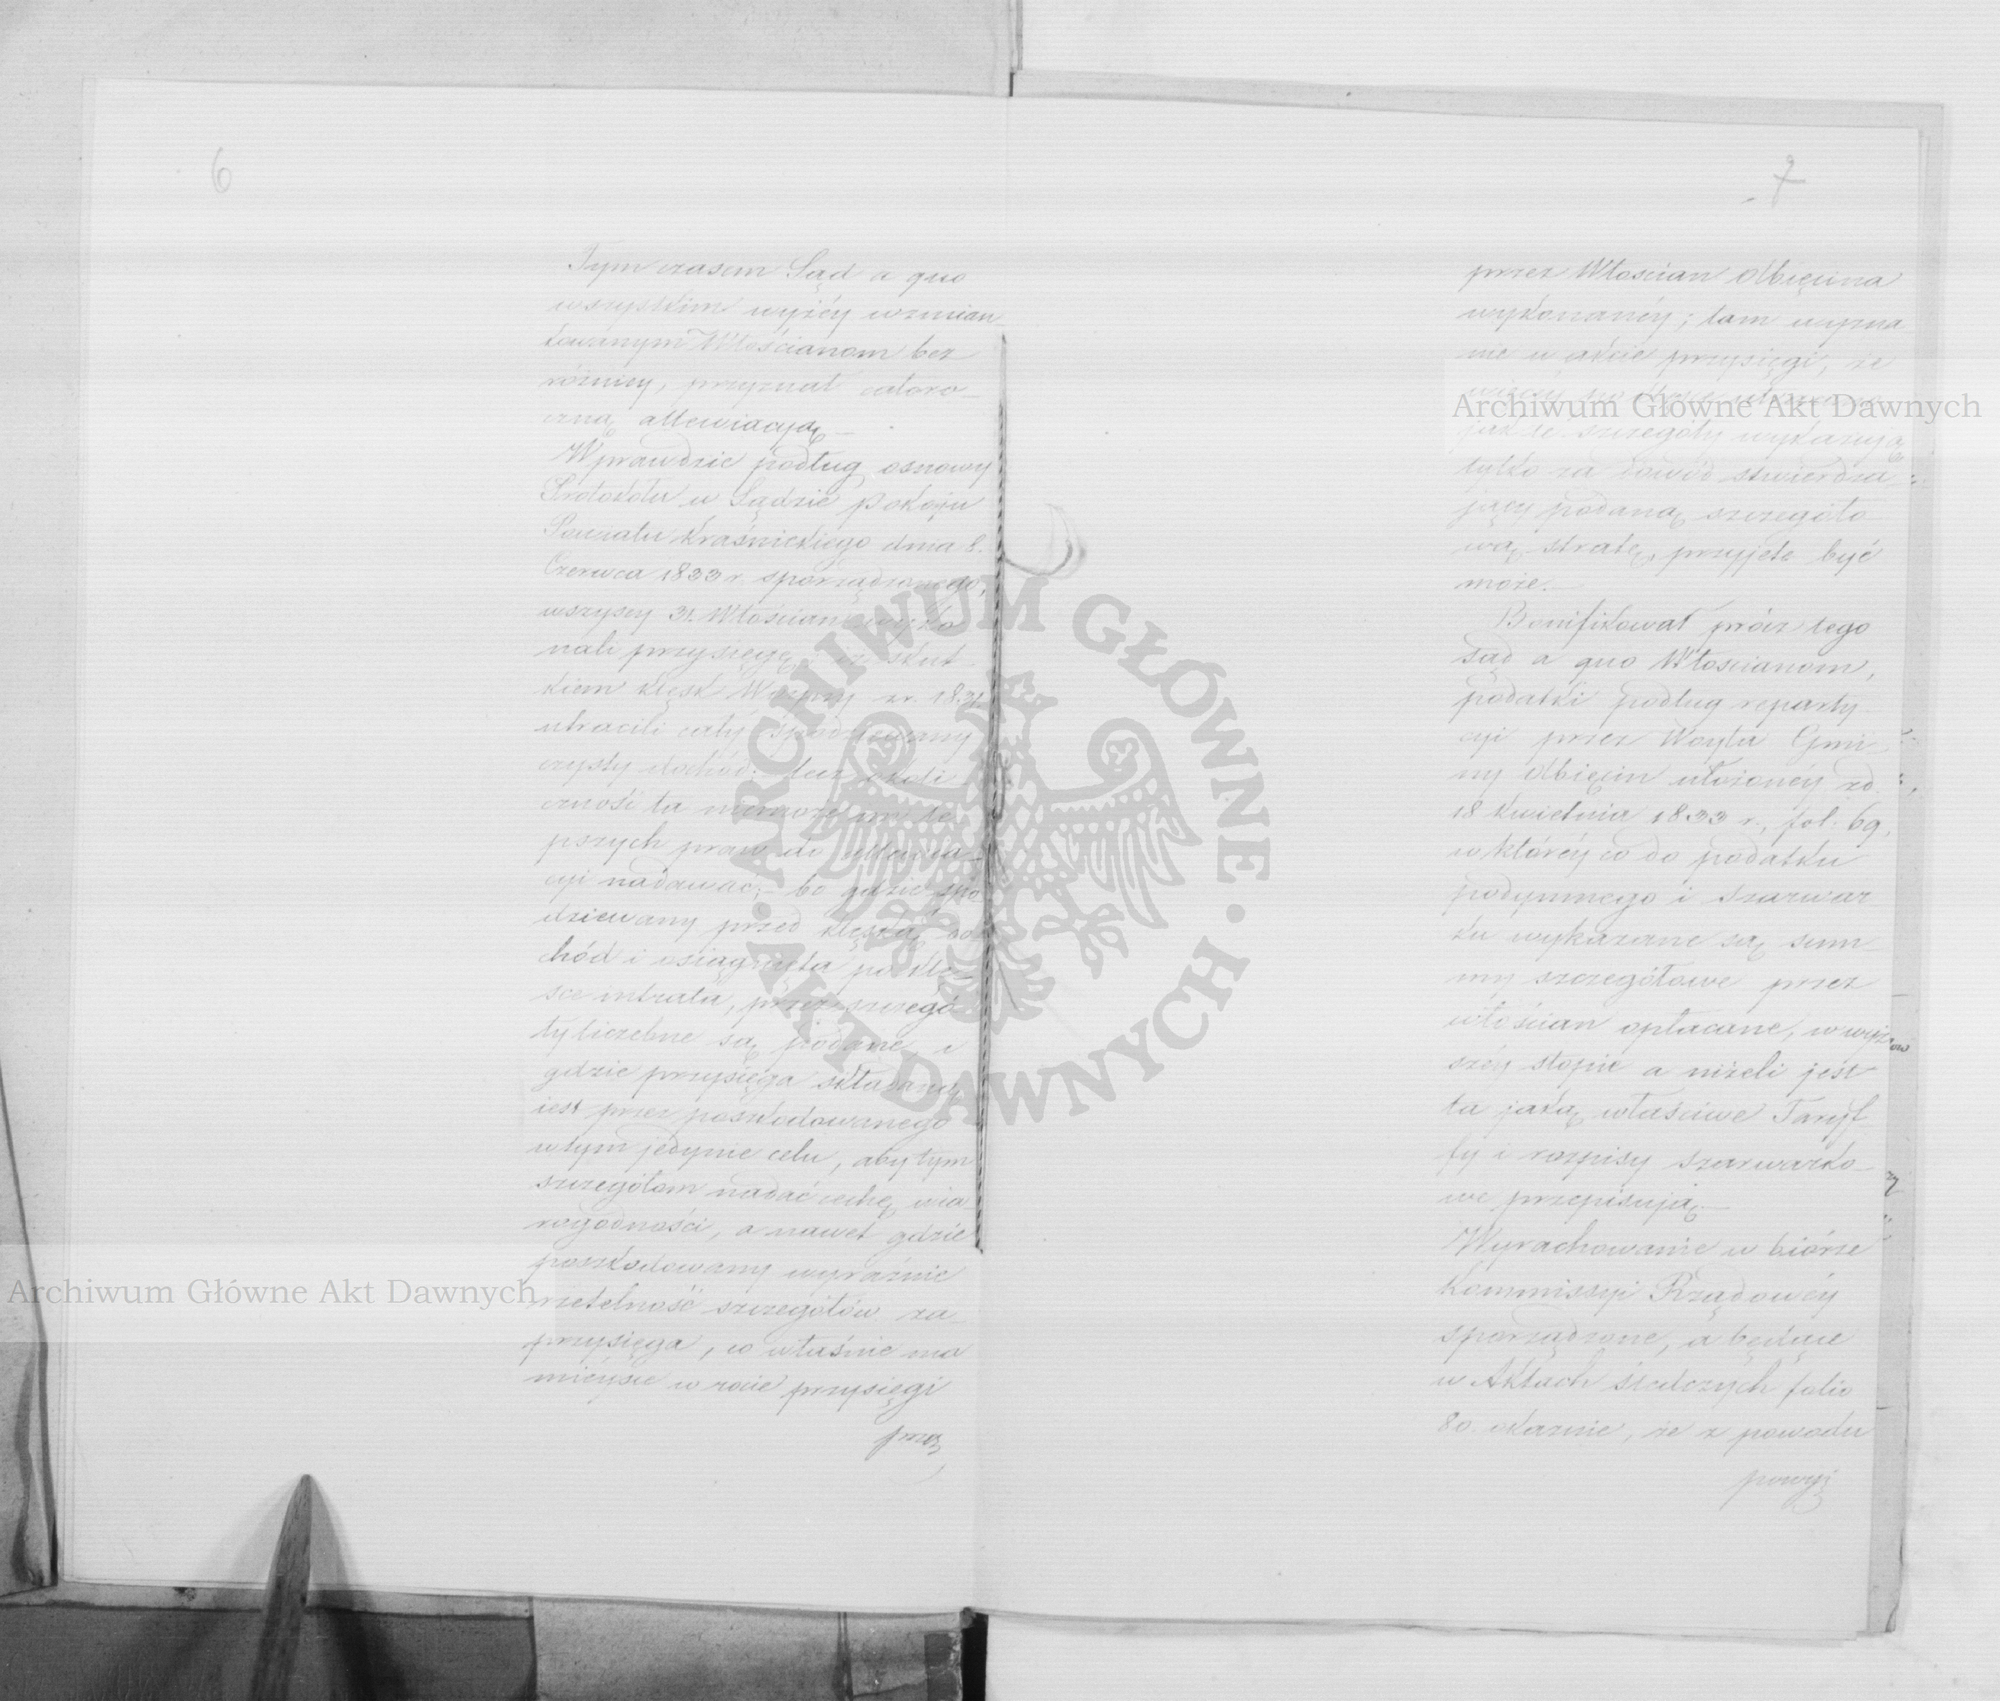 6
Tym czasem Sąd a quo
wszystkim wyżéy wzmian
kowanym Włościanom bez
różnicy, przyznał całoro-
czną allewiacyą. –
Wprawdzie podług osnowy
Protokółu w Sądzie Pokoju
Powiatu Kraśnickiego dnia 8.
Czerwca 1833 r. sporządzonego,
wszyscy 31. Włościan wyko
nali przysięgę, iż skut-
kiem klęsk Woyny z r. 1831
utracili cały spodziewany
czysty dochód; lecz okoli
czność ta niemoże im le
pszych praw do allewia-
cyi nadawać; – bo gdzie spo
dziewany przed klęską do
chód i osiągnięta po klę-
sce intrata, przez szczegó
ły liczebne są podane, i
gdzie przysięga składaną
iest przez poszkodowanego
w tym jedynie celu, aby tym
szczegółom nadać cechę wia
rogodności, a nawet gdzie
poszkodowany wyraźnie
rzetelność szczegółów za-
przysięga, co właśnie ma
mieysce w rocie przysięgi
przez
7
przez Włościan Olbięcina
wykonanéy; tam wyzna
nie w akcie przysięgi, że
jak te szczegóły wykazują
tylko za dowód stwierdza
jący podaną szczegóło
wą stratę, przyjęte być
może. –
Bonifikował prócz tego
Sąd a quo Włościanom,
podatki podług reparty-
cyi przez Woyta Gmi-
ny Olbięcin ułożonéy zd.
18 Kwietnia 1833 r., fol. 69,
w któréy co do podatku
podymnego i szarwar
ku wykazane są sum-
my szczegółowe przez
włościan opłacane, w wyż
széy stopie a niżeli jest
ta jaką właściwe Taryf
fy i rozpisy szarwarko-
we przepisują. –
Wyrachowanie w biórze
Kommissyi Rządowéy
sporządzone, a będące
w Aktach śledczych folio
80. okazuie, że z powodu
powyż
Archiwum Główne Akt Dawnych
Archiwum Główne Akt Dawnych
· ARCHIWUM GŁÓWNE · AKT DAWNYCH